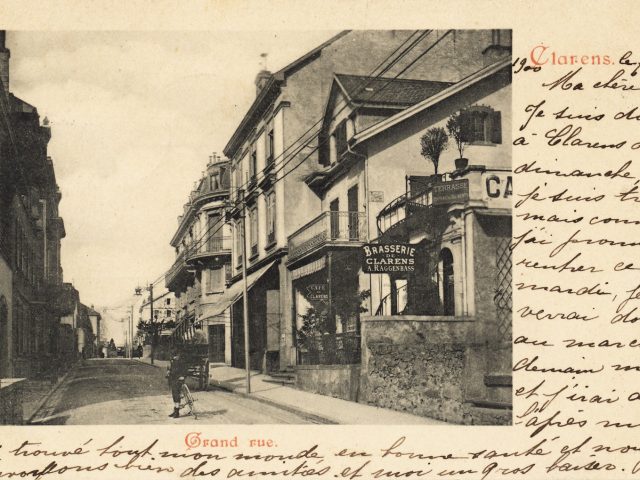 Clarens. le
1900
Ma chère
Je suis do
à Clarens d
dimanche,
je suis tr
mais com
j'ai prom
rentrer ce
mardi, je
verrai do
au marc
demain m
et j'irai a
l'après m
TERRASSE
CA
BRASSERIE
DE
CLARENS
A. RAGGENBASS
CAFÉ
CLARENS
Grand rue.
trouvé tout mon monde en bonne santé et nou
bien des amitiés et moi un gros baiser.